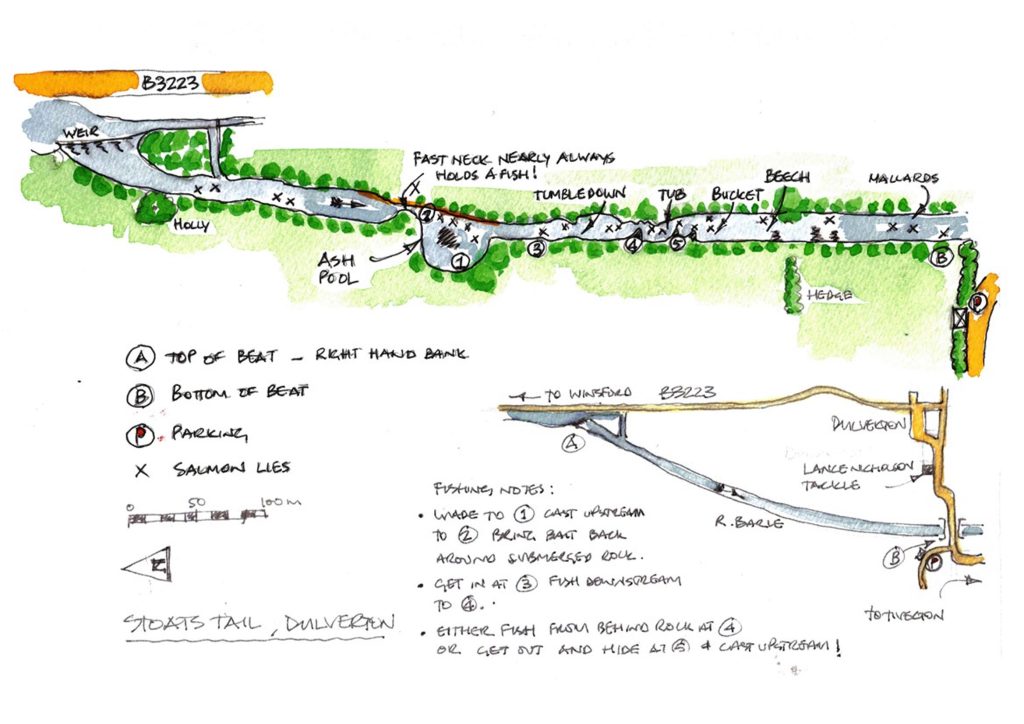 B3223
WEIR
FAST NECK NEARLY ALWAYS
HOLDS A FISH!
TUMBLEDOWN
TUB
BUCKET
BEECH
MALLARDS
HOLLY
2
ASH
POOL
1
3
4
5
B
HEDGE
P
A TOP OF BEAT - RIGHT HAND BANK
B BOTTOM OF BEAT
P PARKING
X SALMON LIES
0 50 100m
N
STOATS TAIL, DULVERTON
TO WINSFORD B3223
DULVERTON
A
LANCE NICHOLSON
TACKLE
R. BARLE
B
P
TO TIVERTON
FISHING NOTES:
• WADE TO 1 CAST UPSTREAM
TO 2 BRING BAIT BACK
AROUND SUBMERGED ROCK.
• GET IN AT 3 FISH DOWNSTREAM
TO 4.
• EITHER FISH FROM BEHIND ROCK AT 4
OR GET OUT AND HIDE AT 5 & CAST UPSTREAM!